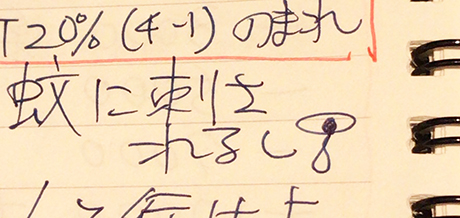 T20% (4-1) のまれ
蚊に刺さ
れるし